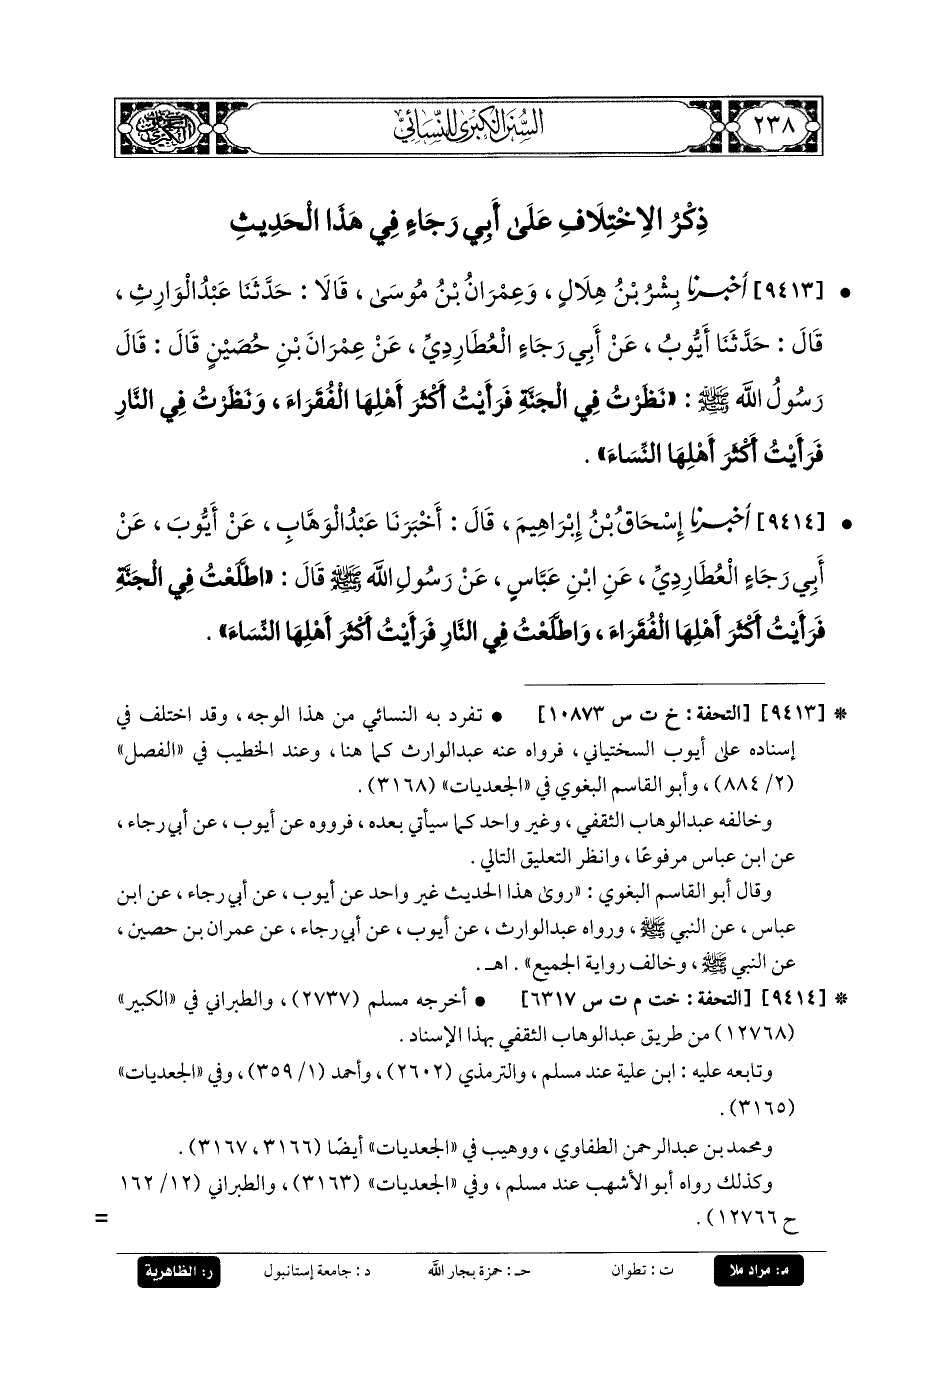 ٢٣٨
السُّنَن الكبرى للنسائي
ذِكْرُ الِاخْتِلَافِ عَلَىٰ أَبِي رَجَاءٍ فِي هَذَا الْحَدِيثِ
• [٩٤١٣] أخبرنا بِشْرُ بْنُ هِلَالٍ، وَعِمْرَانُ بْنُ مُوسَىٰ، قَالَا: حَدَّثَنَا عَبْدُالْوَارِثِ،
قَالَ: حَدَّثَنَا أَيُّوبُ، عَنْ أَبِي رَجَاءٍ الْعُطَارِدِيِّ، عَنْ عِمْرَانَ بْنِ حُصَيْنٍ قَالَ: قَالَ
رَسُولُ اللَّه ﷺ: «نَظَرْتُ فِي الْجَنَّةِ فَرَأَيْتُ أَكْثَرَ أَهْلِهَا الْفُقَرَاءَ، وَنَظَرْتُ فِي النَّارِ
فَرَأَيْتُ أَكْثَرَ أَهْلِهَا النِّسَاءَ».
• [٩٤١٤] أخبرنا إِسْحَاقُ بْنُ إِبْرَاهِيمَ، قَالَ: أَخْبَرَنَا عَبْدُالْوَهَّابِ، عَنْ أَيُّوبَ، عَنْ
أَبِي رَجَاءٍ الْعُطَارِدِيِّ، عَنِ ابْنِ عَبَّاسٍ، عَنْ رَسُولِ اللَّه ﷺ قَالَ: «اطَّلَعْتُ فِي الْجَنَّةِ
فَرَأَيْتُ أَكْثَرَ أَهْلِهَا الْفُقَرَاءَ، وَاطَّلَعْتُ فِي النَّارِ فَرَأَيْتُ أَكْثَرَ أَهْلِهَا النِّسَاءَ».
* [٩٤١٣] [التحفة: خ ت س ١٠٨٧٣] • تفرد به النسائي من هذا الوجه، وقد اختلف في
إسناده على أيوب السختياني، فرواه عنه عبدالوارث كما هنا، وعند الخطيب في «الفصل»
(٢/ ٨٨٤)، وأبو القاسم البغوي في «الجعديات» (٣١٦٨).
وخالفه عبدالوهاب الثقفي، وغير واحد كما سيأتي بعده، فرووه عن أيوب، عن أبي رجاء،
عن ابن عباس مرفوعًا، وانظر التعليق التالي.
وقال أبو القاسم البغوي: «روىٰ هذا الحديث غير واحد عن أيوب، عن أبي رجاء، عن ابن
عباس، عن النبي ﷺ، ورواه عبدالوارث، عن أيوب، عن أبي رجاء، عن عمران بن حصين،
عن النبي ﷺ، وخالف رواية الجميع». اهـ.
* [٩٤١٤] [التحفة: خت م ت س ٦٣١٧] • أخرجه مسلم (٢٧٣٧)، والطبراني في «الكبير»
(١٢٧٦٨) من طريق عبدالوهاب الثقفي بهذا الإسناد.
وتابعه عليه: ابن علية عند مسلم، والترمذي (٢٦٠٢)، وأحمد (١/ ٣٥٩)، وفي «الجعديات»
(٣١٦٥).
ومحمد بن عبدالرحمن الطفاوي، ووهيب في «الجعديات» أيضًا (٣١٦٦، ٣١٦٧).
وكذلك رواه أبو الأشهب عند مسلم، وفي «الجعديات» (٣١٦٣)، والطبراني (١٢/ ١٦٢
ح ١٢٧٦٦). =
م: مراد ملا ت: تطوان حـ: حمزة بجار اللَّه د: جامعة إستانبول ر: الظاهرية